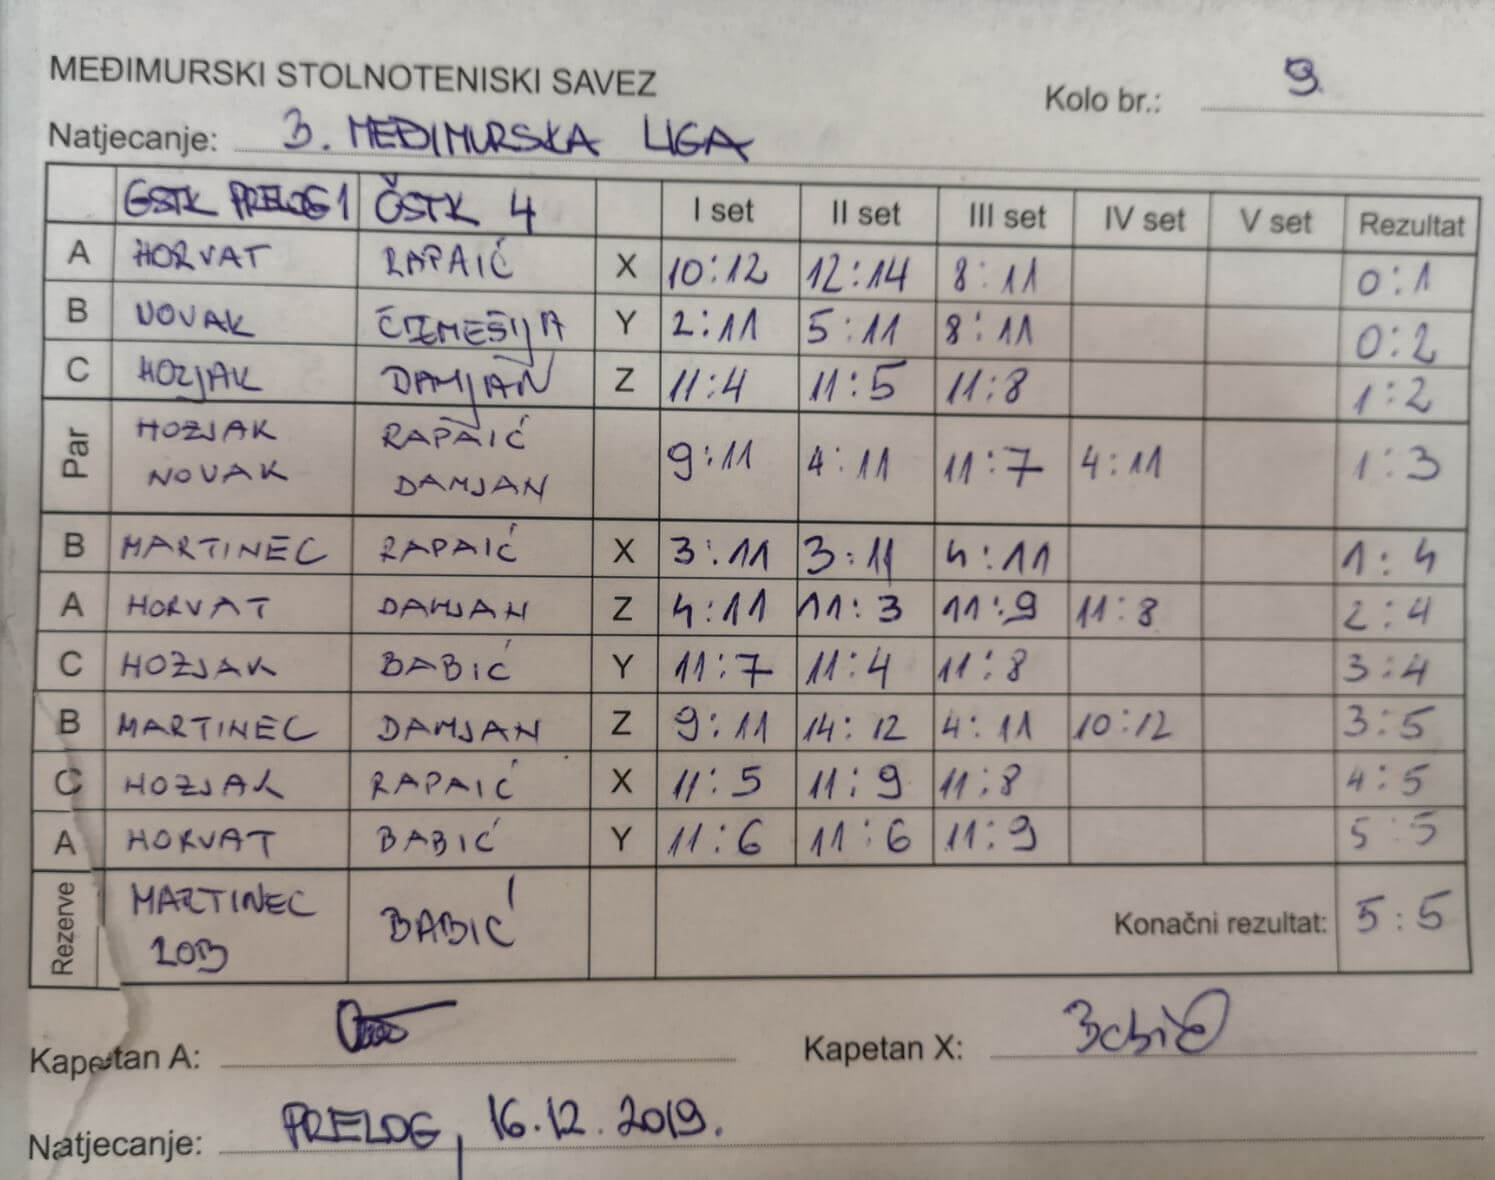 MEĐIMURSKI STOLNOTENISKI SAVEZ
Kolo br.: 9
Natjecanje: 3. MEĐIMURSKA LIGA
GSTK PRELOG 1 ČSTK 4 I set II set III set IV set V set Rezultat
A HORVAT RAPAIĆ X 10:12 12:14 8:11 0:1
B NOVAK ČIZMEŠIJA Y 2:11 5:11 8:11 0:2
C HOZJAK DAMJAN Z 11:4 11:5 11:8 1:2
Par HOZJAK NOVAK RAPAIĆ DAMJAN 9:11 4:11 11:7 4:11 1:3
B MARTINEC RAPAIĆ X 3:11 3:11 4:11 1:4
A HORVAT DAMJAN Z 4:11 11:3 11:9 11:8 2:4
C HOZJAK BABIĆ Y 11:7 11:4 11:8 3:4
B MARTINEC DAMJAN Z 9:11 14:12 4:11 10:12 3:5
C HOZJAK RAPAIĆ X 11:5 11:9 11:8 4:5
A HORVAT BABIĆ Y 11:6 11:6 11:9 5:5
Rezerve MARTINEC BABIĆ Konačni rezultat: 5:5
Kapetan A:
Kapetan X: Babić
Natjecanje: PRELOG, 16.12.2019.